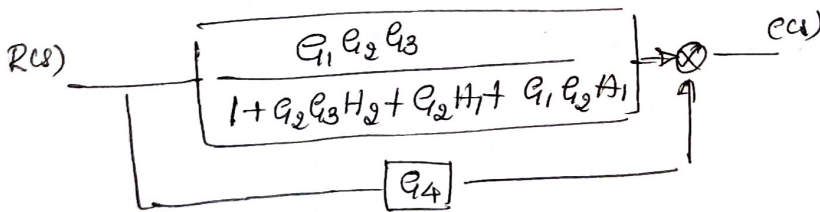 R(s)
G₁ G₂ G₃
1 + G₂ G₃ H₂ + G₂ H₁ + G₁ G₂ H₁
C(s)
G4